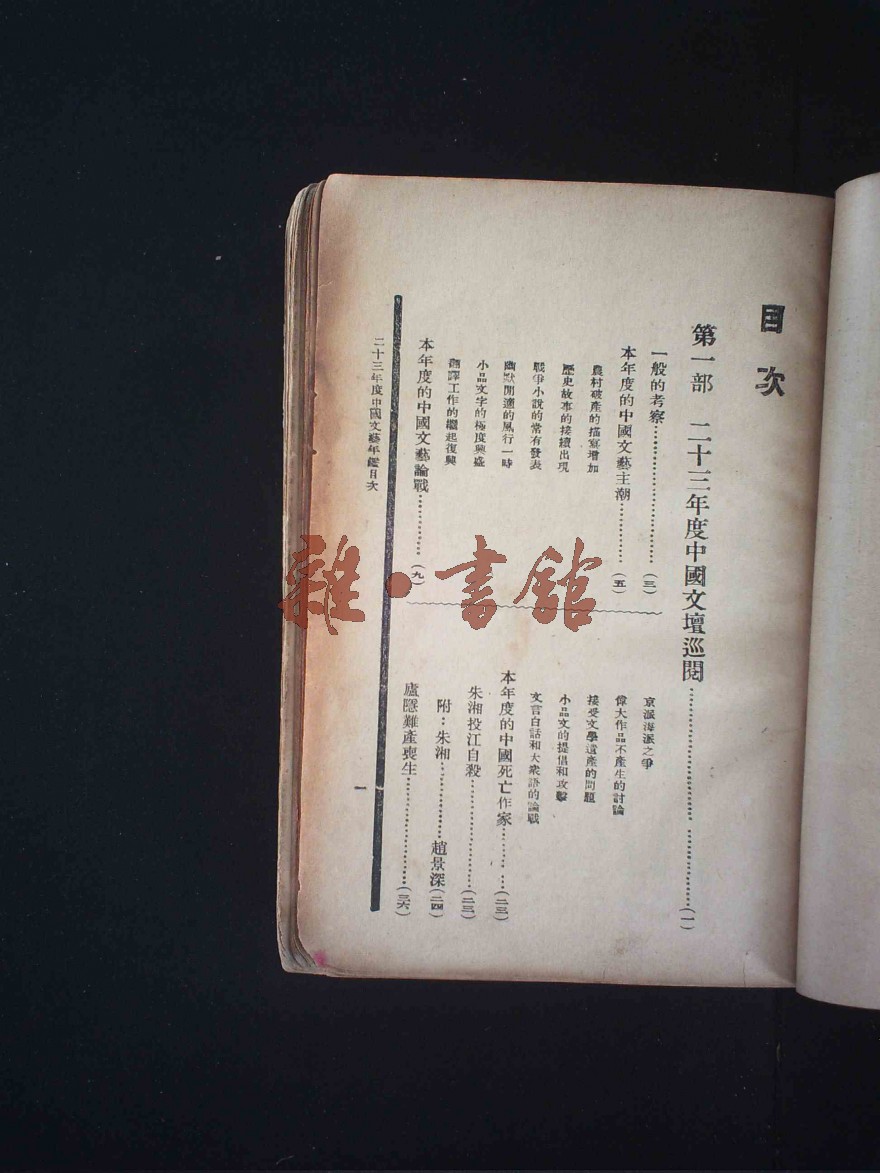 目次
第一部 二十三年度中國文壇巡閱……(一)
一般的考察……(三)
本年度的中國文藝主潮……(五)
農村破產的描寫增加
歷史故事的接續出現
戰爭小說的常有發表
幽默閒適的風行一時
小品文字的極度興盛
翻譯工作的繼起復興
本年度的中國文藝論戰……(九)
京派海派之爭
偉大作品不產生的討論
接受文學遺產的問題
小品文的提倡和攻擊
文言白話和大衆語的論戰
本年度的中國死亡作家……(二三)
朱湘投江自殺……(二三)
附：朱湘……趙景深(二四)
廬隱難產喪生……(三六)
二十三年度中國文藝年鑑目次
一
雜·書館